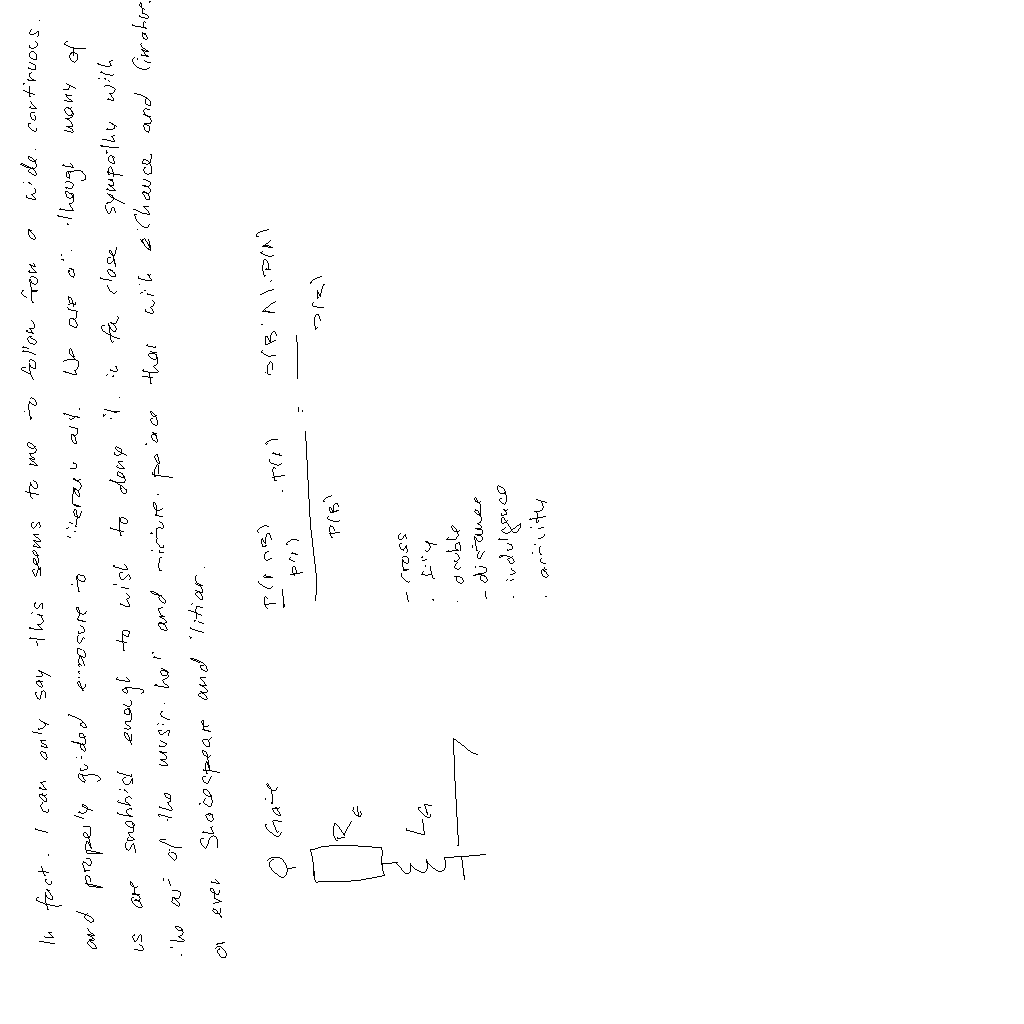 In fact. I can only say this seems to me to follow from a wide. continuous.
and properly guided exposure to literary art. We are all. though many of
us are snobbist enough to wish to deny it. in far close sympathy with
the art of the music-hall and picture-palace than with Chaucer and
or even Shakespeare and
P(A∩B) . P(A) P(B|A).P(A)
P(A) =
P(B) P(B)
- cross
. fily
. ouble
- distance
. indulgence
. anility
Gate
R G
L G